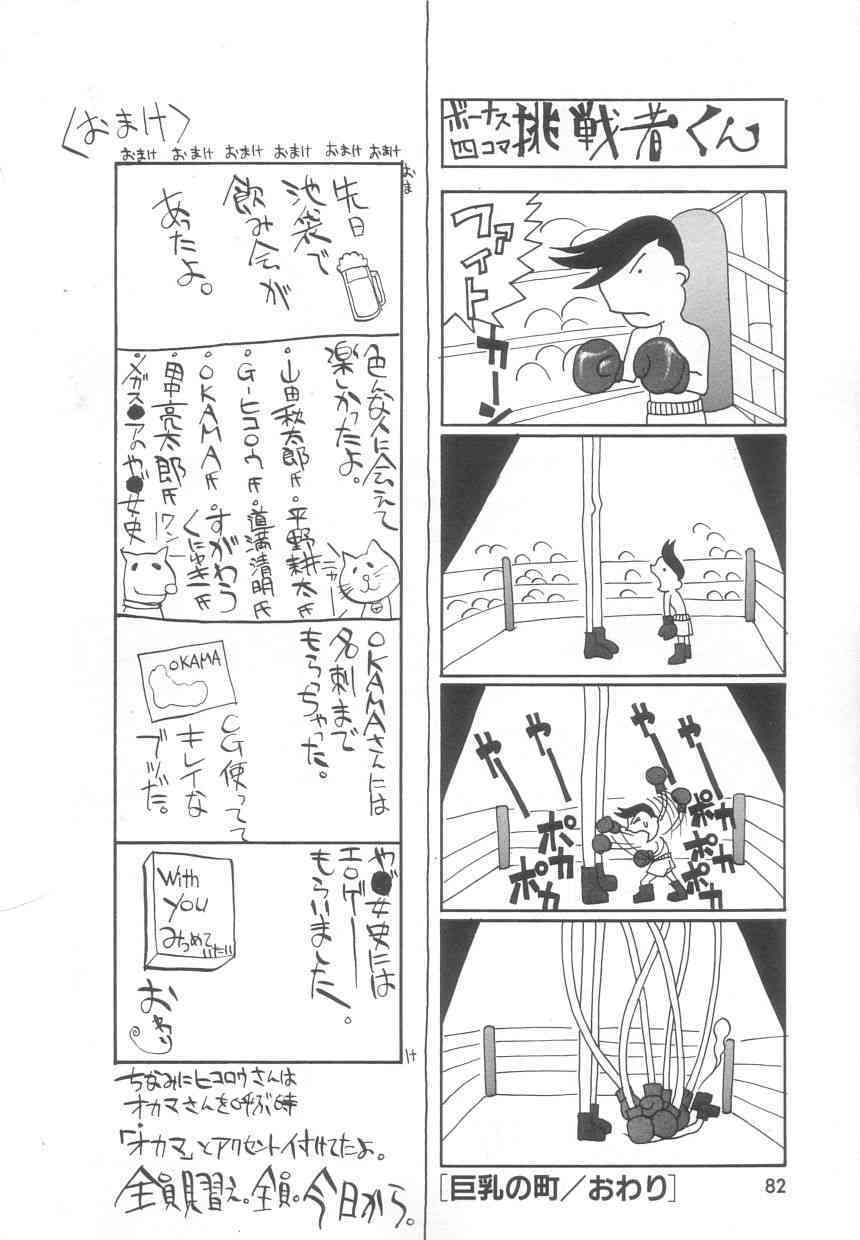 ボーナス
四コマ
挑戦者くん
ファイト
カーン
やー
やー
やー
やー
ポカ
ポカ
ポカ
ポカ
ポカ
[巨乳の町／おわり]
82
〈おまけ〉
おまけ おまけ おまけ おまけ おまけ おまけ
おま
け
先日
池袋で
飲み会が
あったよ。
色んな人に会えて
楽しかったよ。
・山田秋太郎氏・平野耕太氏
・G-ヒコロウ氏・道満清明氏
・OKAMA氏・すがわらくにゆき氏
・田中亮太郎氏
・メガス●アのやば●女史
ニャー
ワン！
OKAMAさんには
名刺まで
もらっちゃった。
OKAMA
CG使ってて
キレイな
ブツだ。
や●女史には
エロゲー
もらいました。
With
You
みつめて
いたい
おわり
ちなみにヒコロウさんは
オカマさんを呼ぶ時
「オカマ」とアクセント付けてたよ。
全員見習え。全員。今日から。